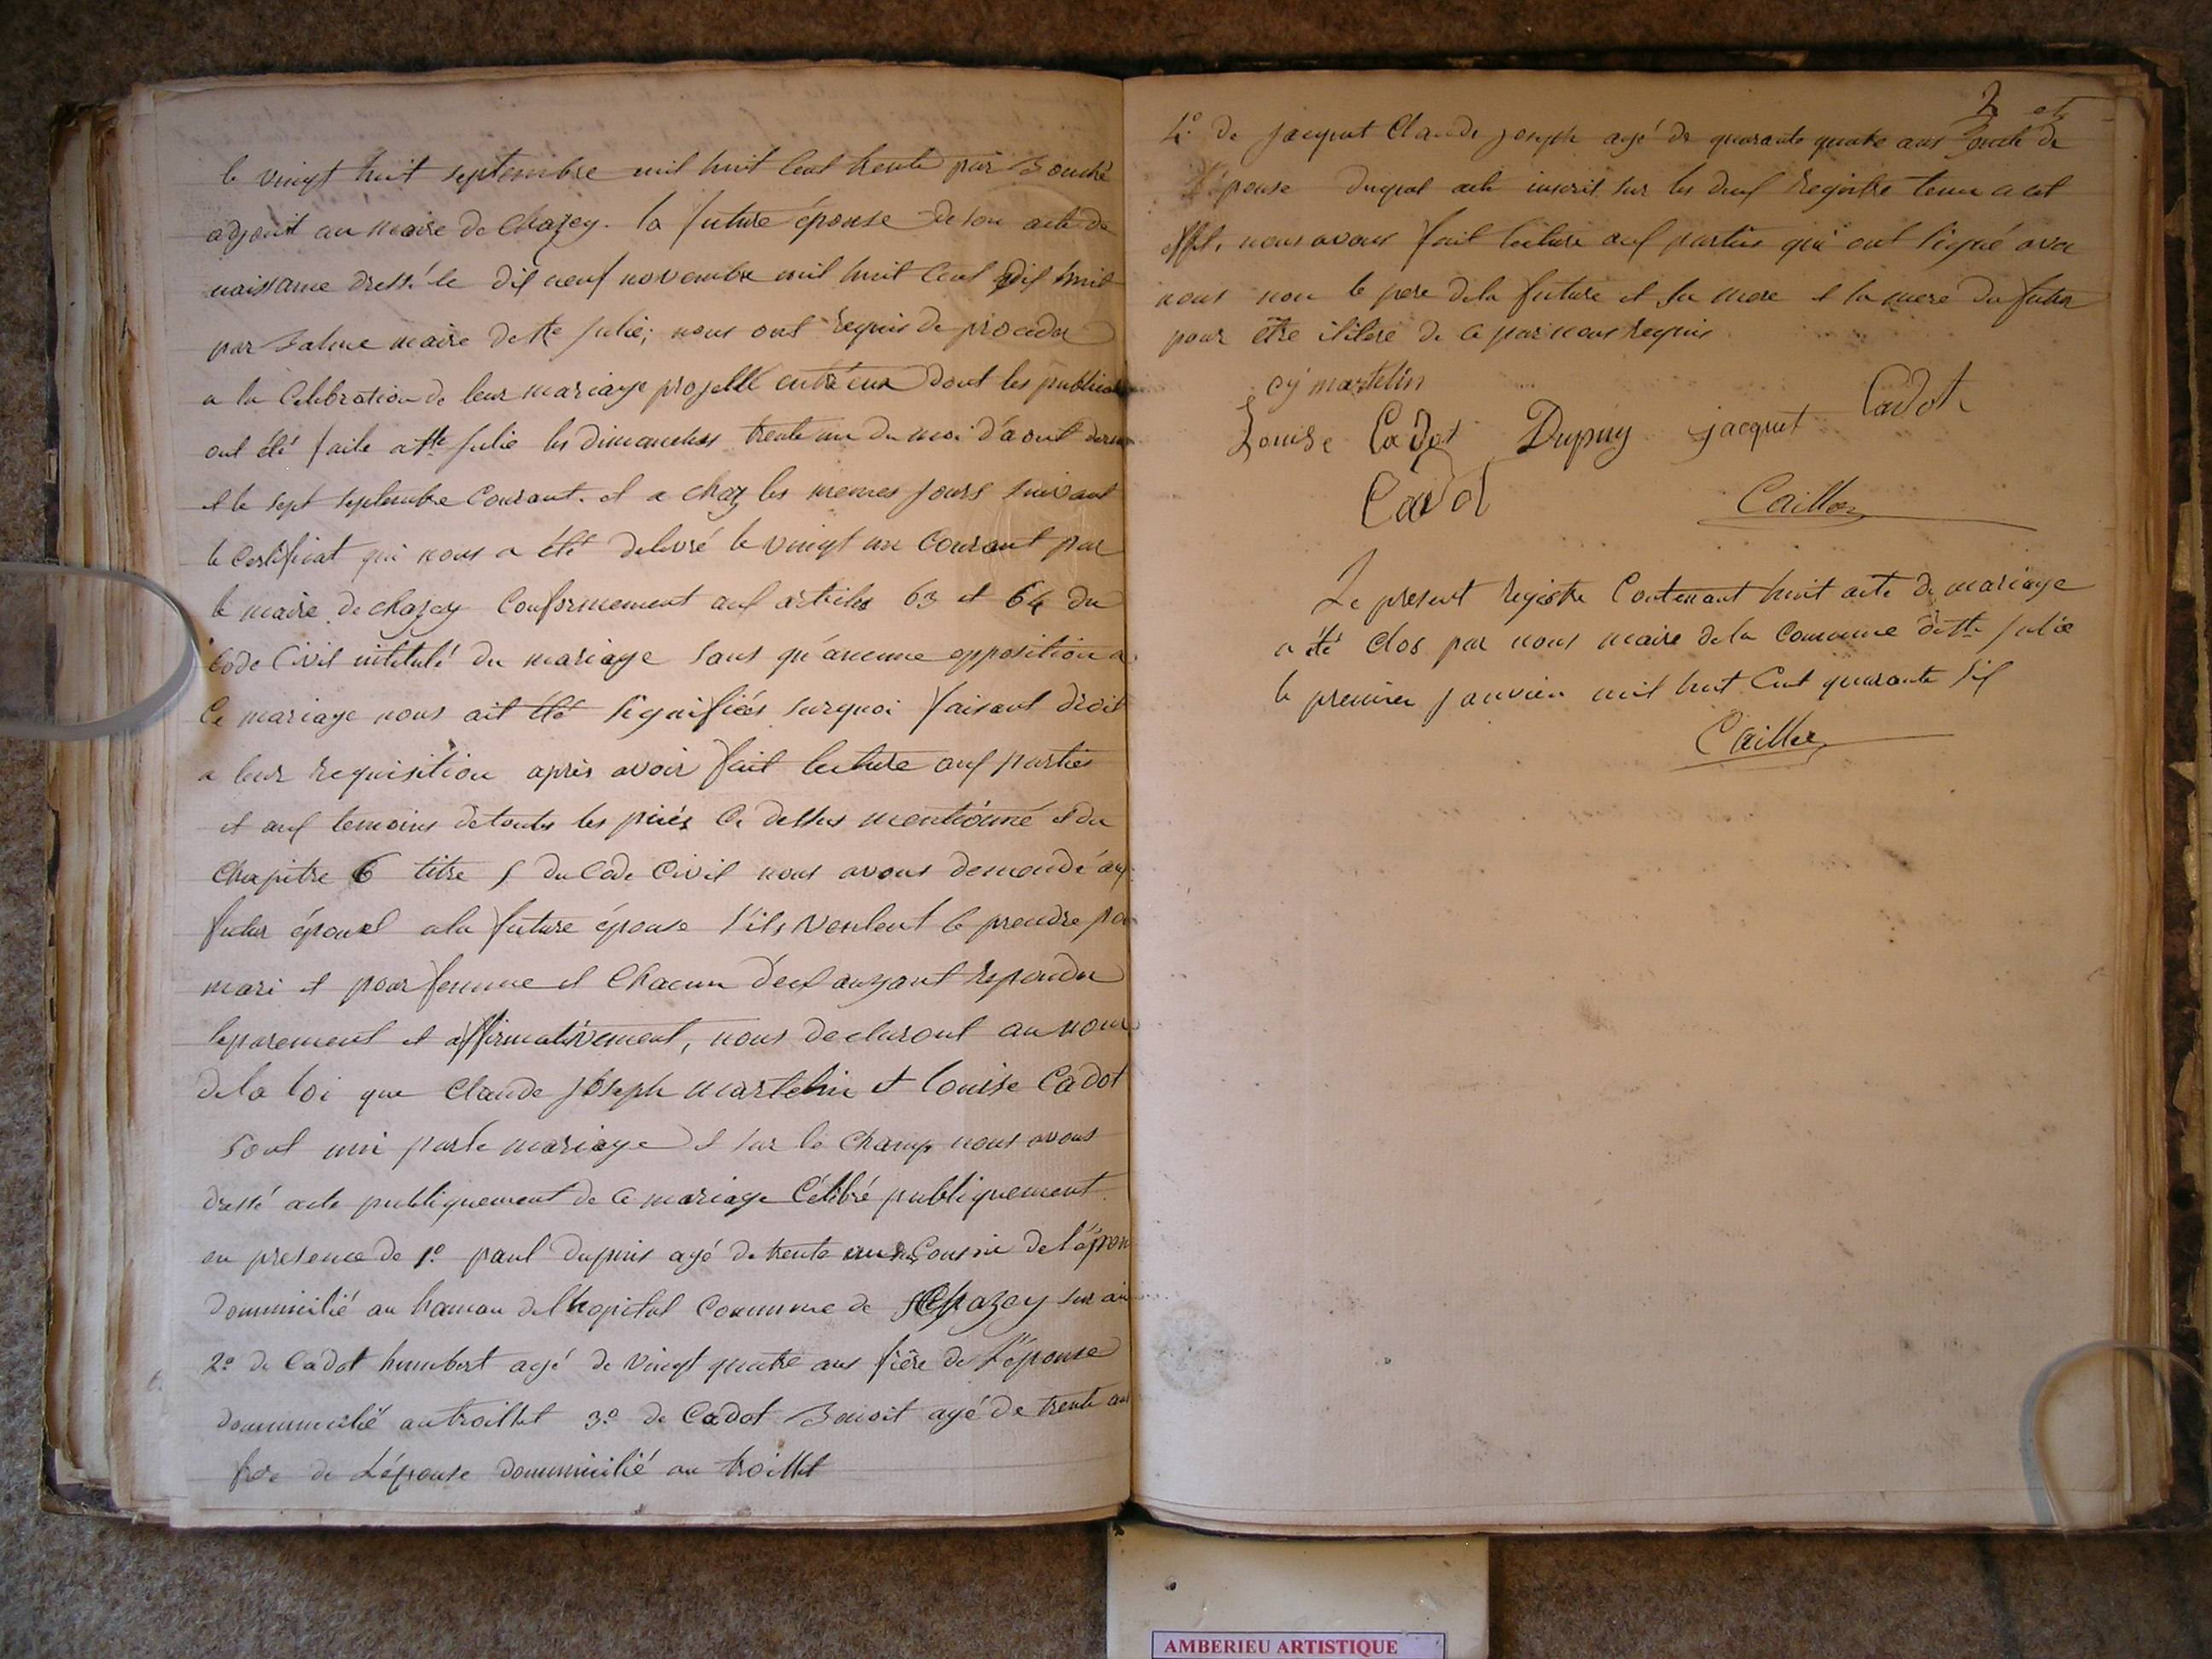 le vingt huit septembre mil huit cent trente par Bouché
adjoint au maire de chazey. la future épouse de son acte de
naissance dressé le dix neuf novembre mil huit cent dix huit
par maire de Ste Julie; nous ont requis de proceder
a la Celebration de leur mariage projetté entr'eux dont les publicat
ont été faite a Ste Julie les dimanches trente un du moi d'aout dern
et le sept septembre Courant. et a chaz les memes jours suivant
le Certificat qui nous a été delivré le vingt un Courant par
le maire de chazey Conformement aux articles 63 et 64 du
Code Civil intitulé du mariage sans qu'aucune opposition a
Ce mariage nous ait été signifiées surquoi faisant droit
a leur requisition apris avoir fait lecture aux parties
et aux temoins de toutes les piéces Ci dessus mentionné et du
Chapitre 6 titre 5 du Code Civil nous avons demandé au
futur épouse a la future épouse s'ils veulent se prendre po
mari et pour femme et Chacun d'eux ayant repondu
separement et affirmativement, nous declaront au nom
de la loi que Claude joseph martelin et louise Cadot
sont uni par le mariage et sur le Champ nous avons
dressé acte publiquement de ce mariage Célébré publiquement
en presence de 1° paul dupuis agé de trente ans Cousin de l'épou
dommicilié au hamau de l'hopital Commune de Chazey sur ain
2° de Cadot humbert agé de vingt quatre ans frère de l'épouse
dommicilié au troillet 3° de Cadot Benoit agé de trente ans
frere de L'épouse dommicilié au troillet
2 et
4° de jacquet Claude joseph agé de quarante quatre ans oncle de
L'épouse duquel acte inscrit sur les deux registre tenu a cet
effet, nous avons fait lecture aux parties qui ont signé avec
nous non le pere de la future et sa mere et la mere du futur
pour être iliteré de ce par nous requis
cj martelin
Louise Cadot Dupuy jacquet Cadot
Cadot Cailler
Le present registre Contenant huit acte de mariage
a été clos par nous maire de la Commune de Ste Julie
le premier janvier mil huit Cent quarante six
Cailler
AMBERIEU ARTISTIQUE